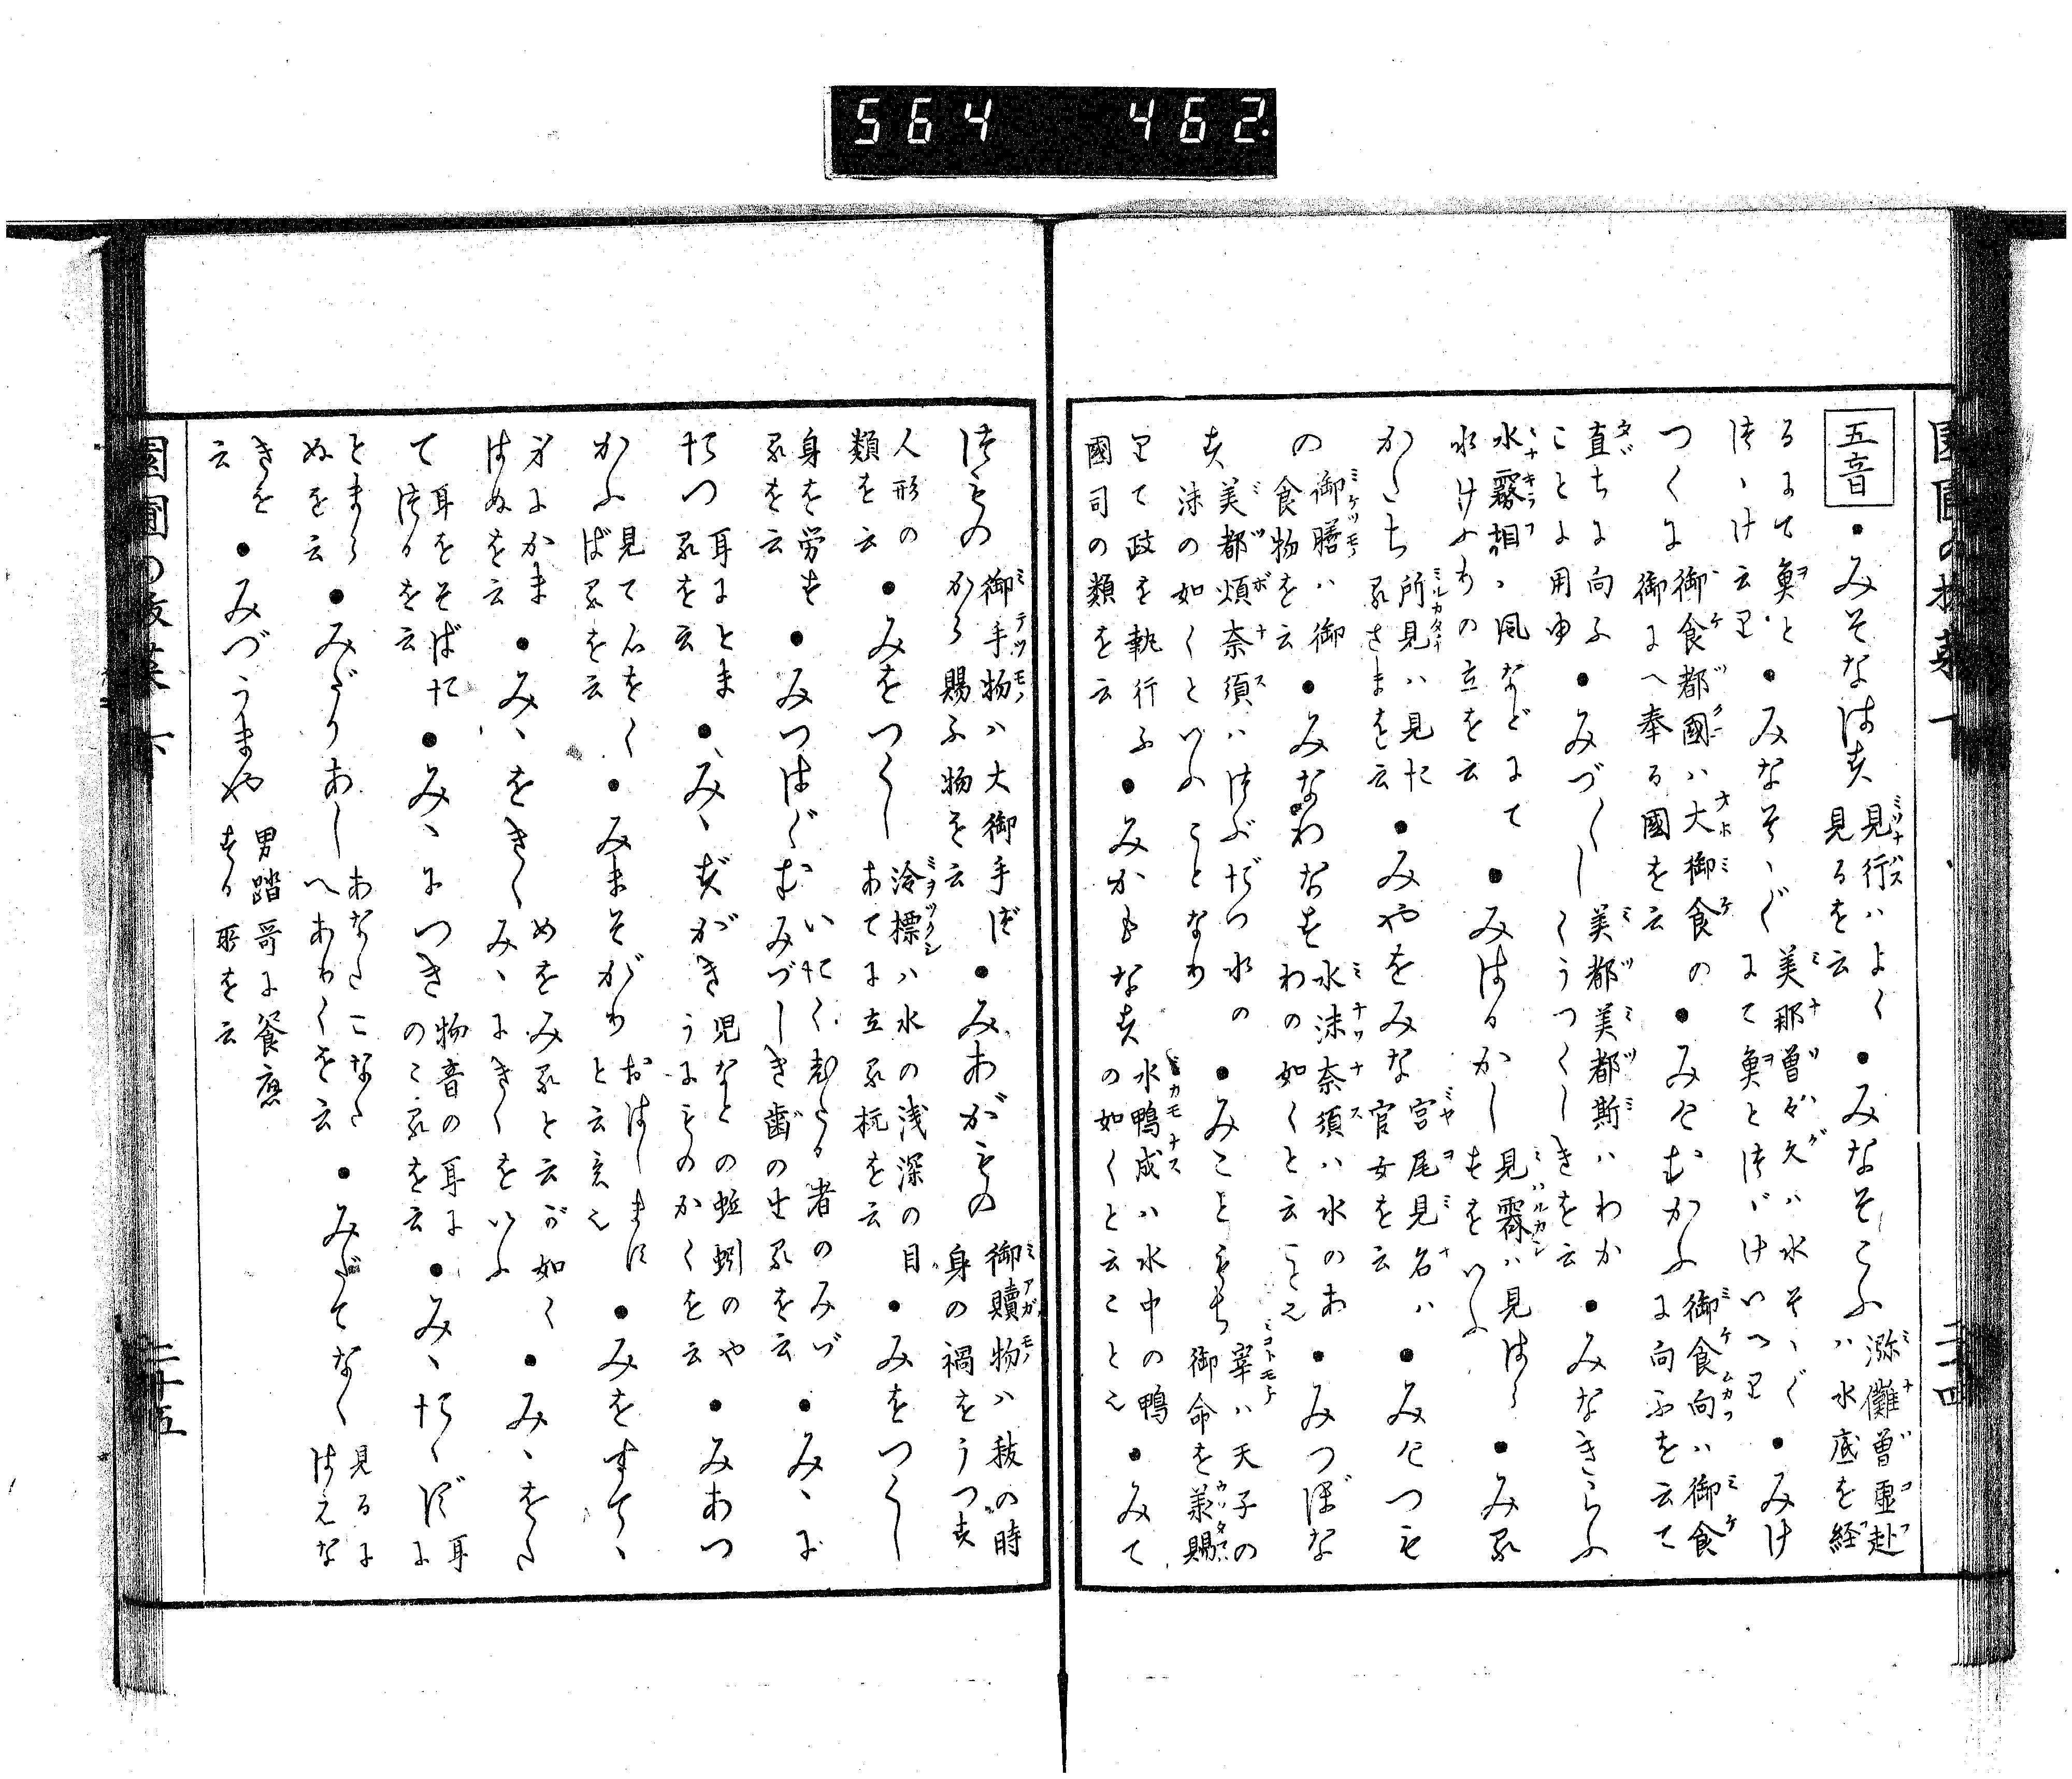 564 462
五音
●みそなはす 見行ハよく見るを云 ●みなそこふ 瀰儺曽虚赴ハ水底を経
るにて魚と つゝけ云り ●みなそゝぐ 美那曽々久ハ水そゝぐにて魚とつゞけいへり ●みけ
つくに 御食都國ハ大御食の御にへ奉る國を云 ●みけむかふ 御食向ハ御食に向ふを云て
直ちに向ふことに用ゆ ●みづ〳〵し 美都美都斯ハわか〳〵うつくしきを云 ●みなきらふ
水霧相ハ風などにて水けふりの立を云 ●みはるかし 見霽ハ見はらすをいふ ●みる
かたち 所見ハ見たるさまを云 ●みやをみな 宮尾見名ハ官女を云 ●みけつも
の 御膳ハ御食物を云 ●みなわなす 水沫奈須ハ水のあわの如くと云こと也 ●みつぼな
す 美都煩奈須ハつぶだつ水の沫の如くといふことなり ●みこともち 宰ハ天子の御命を承賜
りて政を執行ふ國司の類を云 ●みかもなす 水鴨成ハ水中の鴨の如くと云こと也 ●みて
二十四
つもの 御手物ハ大御手づから賜ふ物を云 ●みあがもの 御贖物ハ祓の時身の禍をうつす
人形の類を云 ●みをつくし 澪標ハ水の浅深の目あてに立る杭を云 ●みをつくし
身を労するを云 ●みつはぐむ いたく老たる者のみづみづしき歯の生るを云 ●みゝに
たつ 耳にとまるを云 ●みゝずがき 児なとの蚯蚓のやうにものかくを云 ●みあつ
かふ 見て心をくばるを云 ●みまそがり おはしますと云言也 ●みをすてゝ
身にかまはぬを云 ●みゝをきく めをみると云が如くみゝにきくをいふ ●みゝをた
て 耳をそばだつるを云 ●みゝにつき 物音の耳にのこるを云 ●みゝたゝず 耳に
とまらぬを云 ●みだりあし あなたこなたへありくを云 ●みだてなく 見るにはえな
きを云 ●みづうまや 男踏哥に饗應する所を云
二十五